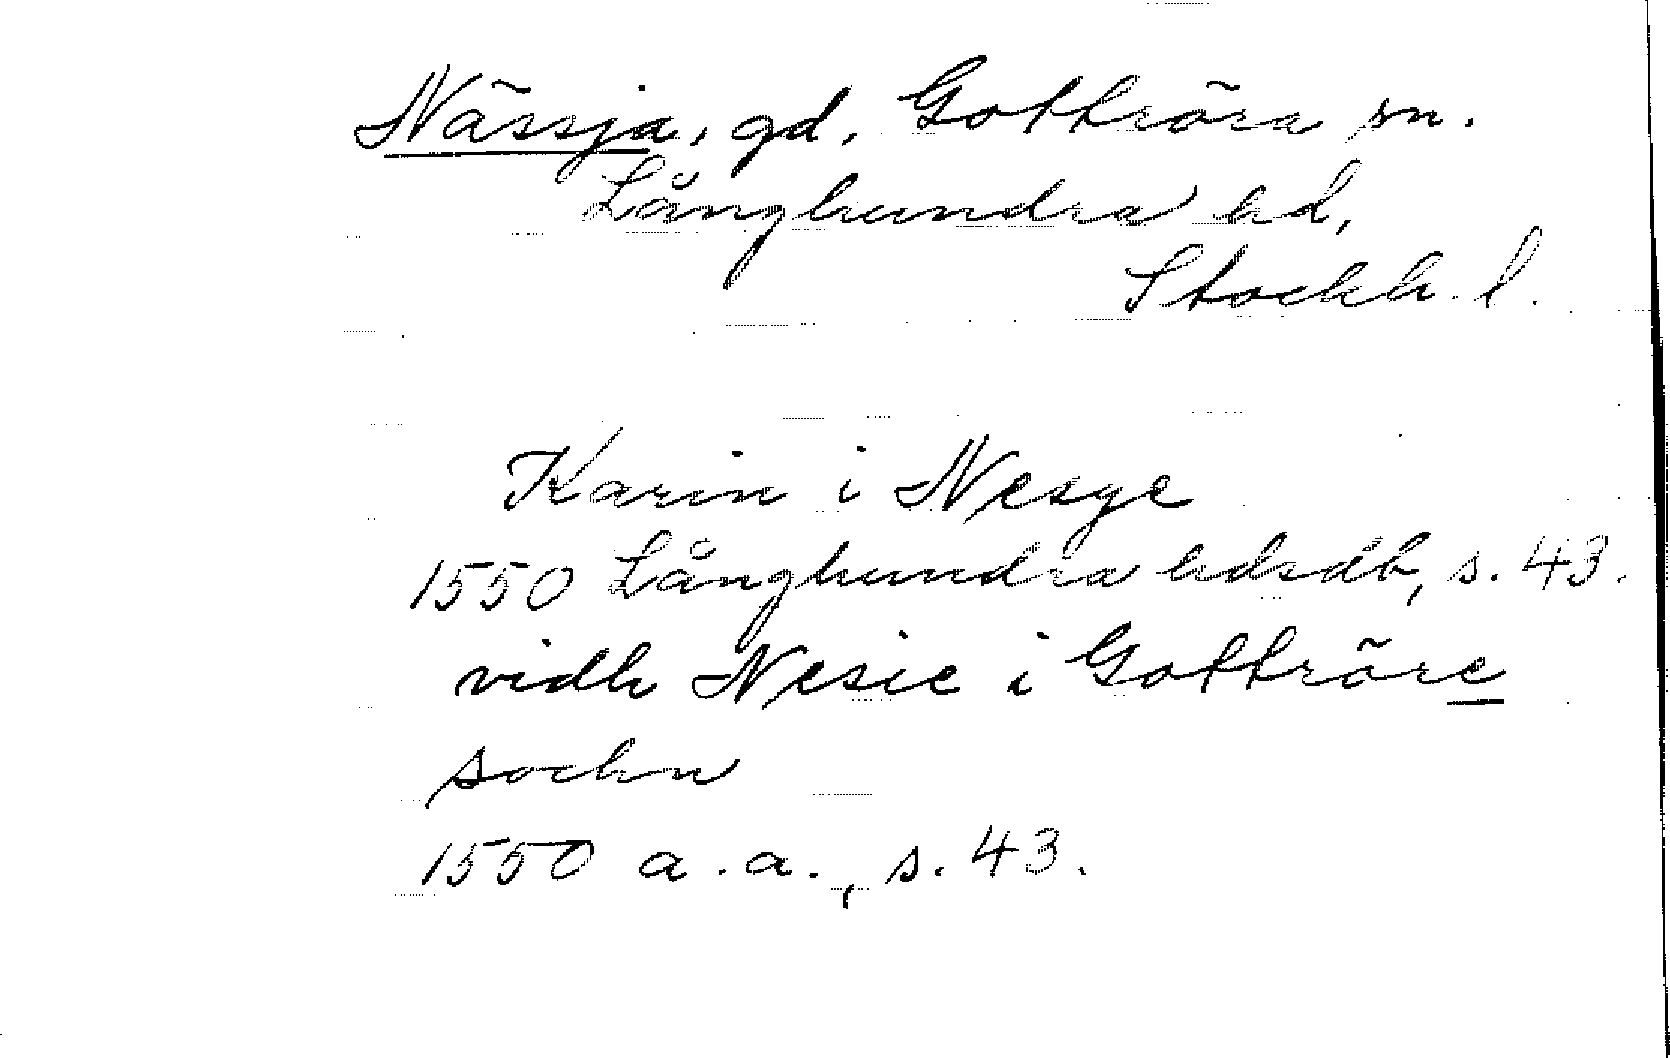 Nässja, gd, Gottröra sn.
Långhundra hd,
Stockh. l.
Karin i Nesye
1550 Långhundra hdsdb, s. 43.
vidh Nesie i Gottröre
sochn
1550 a.a., s. 43.